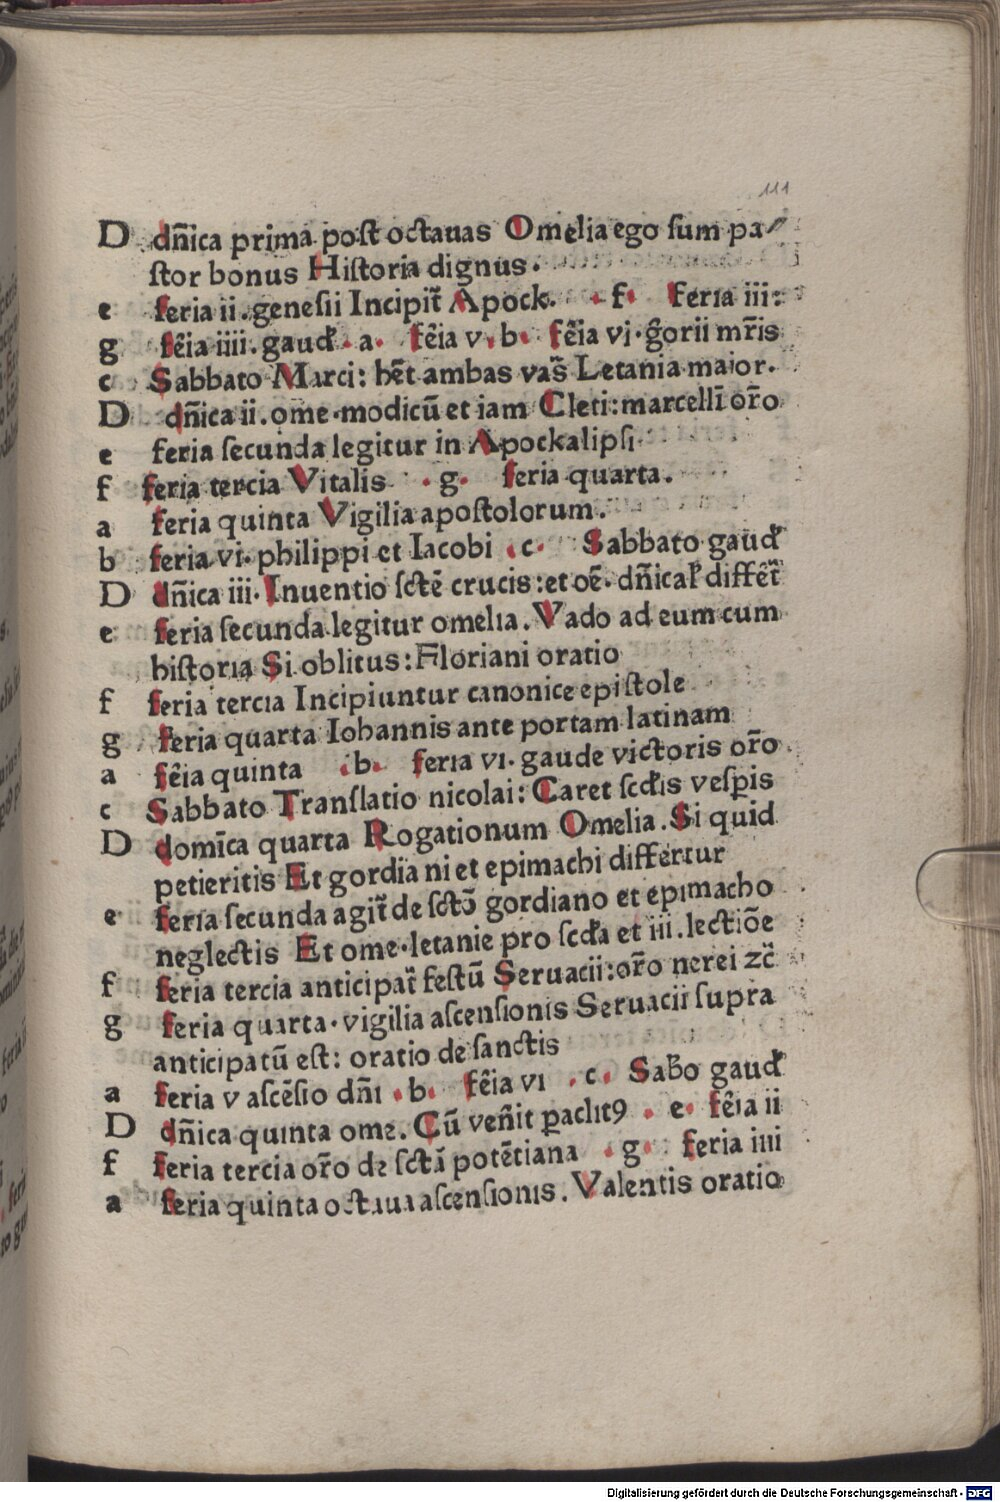 111
D dn̄ica prima post octauas Omelia ego ſum pa⸗
ſtor bonus Hiſtoria dignus.
e feria ii .geneſii Incipit᷑ Apock. . f. feria iii:
g fēia iiii. gaud᷑ . a. fēia v . b. fēia vi . g̑orii mr̄is
c Sabbato Marci: hēt ambas vas̄ Letania maior.
D dn̄ica ii. ome.modicū et iam Cleti:marcellī or̄o
e feria ſecunda legitur in Apockalipſi
f feria tercia Vitalis . g. feria quarta.
a feria quinta Vigilia apoſtolorum.
b feria vi. philippi et Iacobi . c. Sabbato gaud᷑
D dn̄ica iii. Inuentio ſctē crucis:et oē. dn̄ical᷑ differt᷑
e feria ſecunda legitur omelia. Vado ad eum cum
hiſtoria Si oblitus: Floriani oratio
f feria tercia Incipiuntur canonice epiſtole
g feria quarta Iohannis ante portam latinam
a fēia quinta . b. feria vi. gaude victoris or̄o.
c Sabbato Tranſlatio nicolai: Caret ſcd̄is veſꝑis
D domīca quarta Rogationum Omelia. Si quid
petieritis Et gordia ni et epimachi differtur
e feria ſecunda agit᷑ de ſctō gordiano et epimacho
neglectis Et ome.letanie pro ſcd̄a et iii. lectiōe
f feria tercia anticipat᷑ feſtū Seruacii:or̄o nerei zc̄
g feria quarta. vigilia aſcenſionis Seruacii ſupra
anticipatū eſt: oratio de ſanctis
a feria v aſcēſio dn̄i . b. fēia vi . c. Sabb̄o gaud᷑
D dn̄ica quinta ome. Cū ven̄it ꝑaclitꝰ . e. fēia ii
f feria tercia or̄o de ſctā potētiana . g. feria iiii
a feria quinta octaua aſcenſionis. Valentis oratio
Digitalisierung gefördert durch die Deutsche Forschungsgemeinschaft - DFG